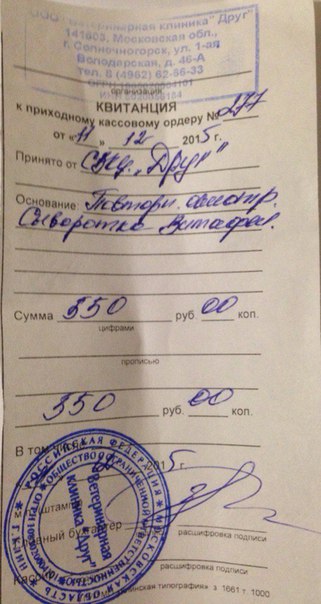 ООО "Ветеринарная клиника "Друг"
141503, Московская обл.,
г. Солнечногорск, ул. 1-ая
Володарская, д. 46-А
тел. 8 (4962) 62-66-33
организация
КВИТАНЦИЯ
к приходному кассовому ордеру № 277
от « 11 » 12 2015 г.
Принято от "Друг"
Основание: Повторн. осмотр.
Сыворотка
Сумма 350 руб. 00 коп.
цифрами
прописью
350 руб. 00 коп.
В том числе
2015 г.
М.П. (штампа)
Главный бухгалтер
расшифровка подписи
Кассир
расшифровка подписи
типография» з 1661 т. 1000
РОССИЙСКАЯ ФЕДЕРАЦИЯ * МОСКОВСКАЯ ОБЛАСТЬ
ОБЩЕСТВО С ОГРАНИЧЕННОЙ ОТВЕТСТВЕННОСТЬЮ
"Ветеринарная
клиника "Друг"